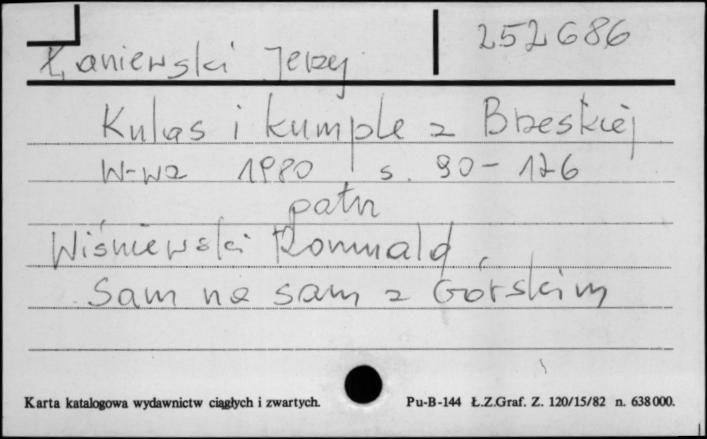 Łaniewski Jerzy 252686
Kulas i kumple z Brzeskiej
W-wa 1980 s. 90-176
patrz
Wiśniewski Romuald
Sam na sam z Górskim
Karta katalogowa wydawnictw ciągłych i zwartych. Pu-B-144 Ł.Z.Graf. Z. 120/15/82 n. 638 000.